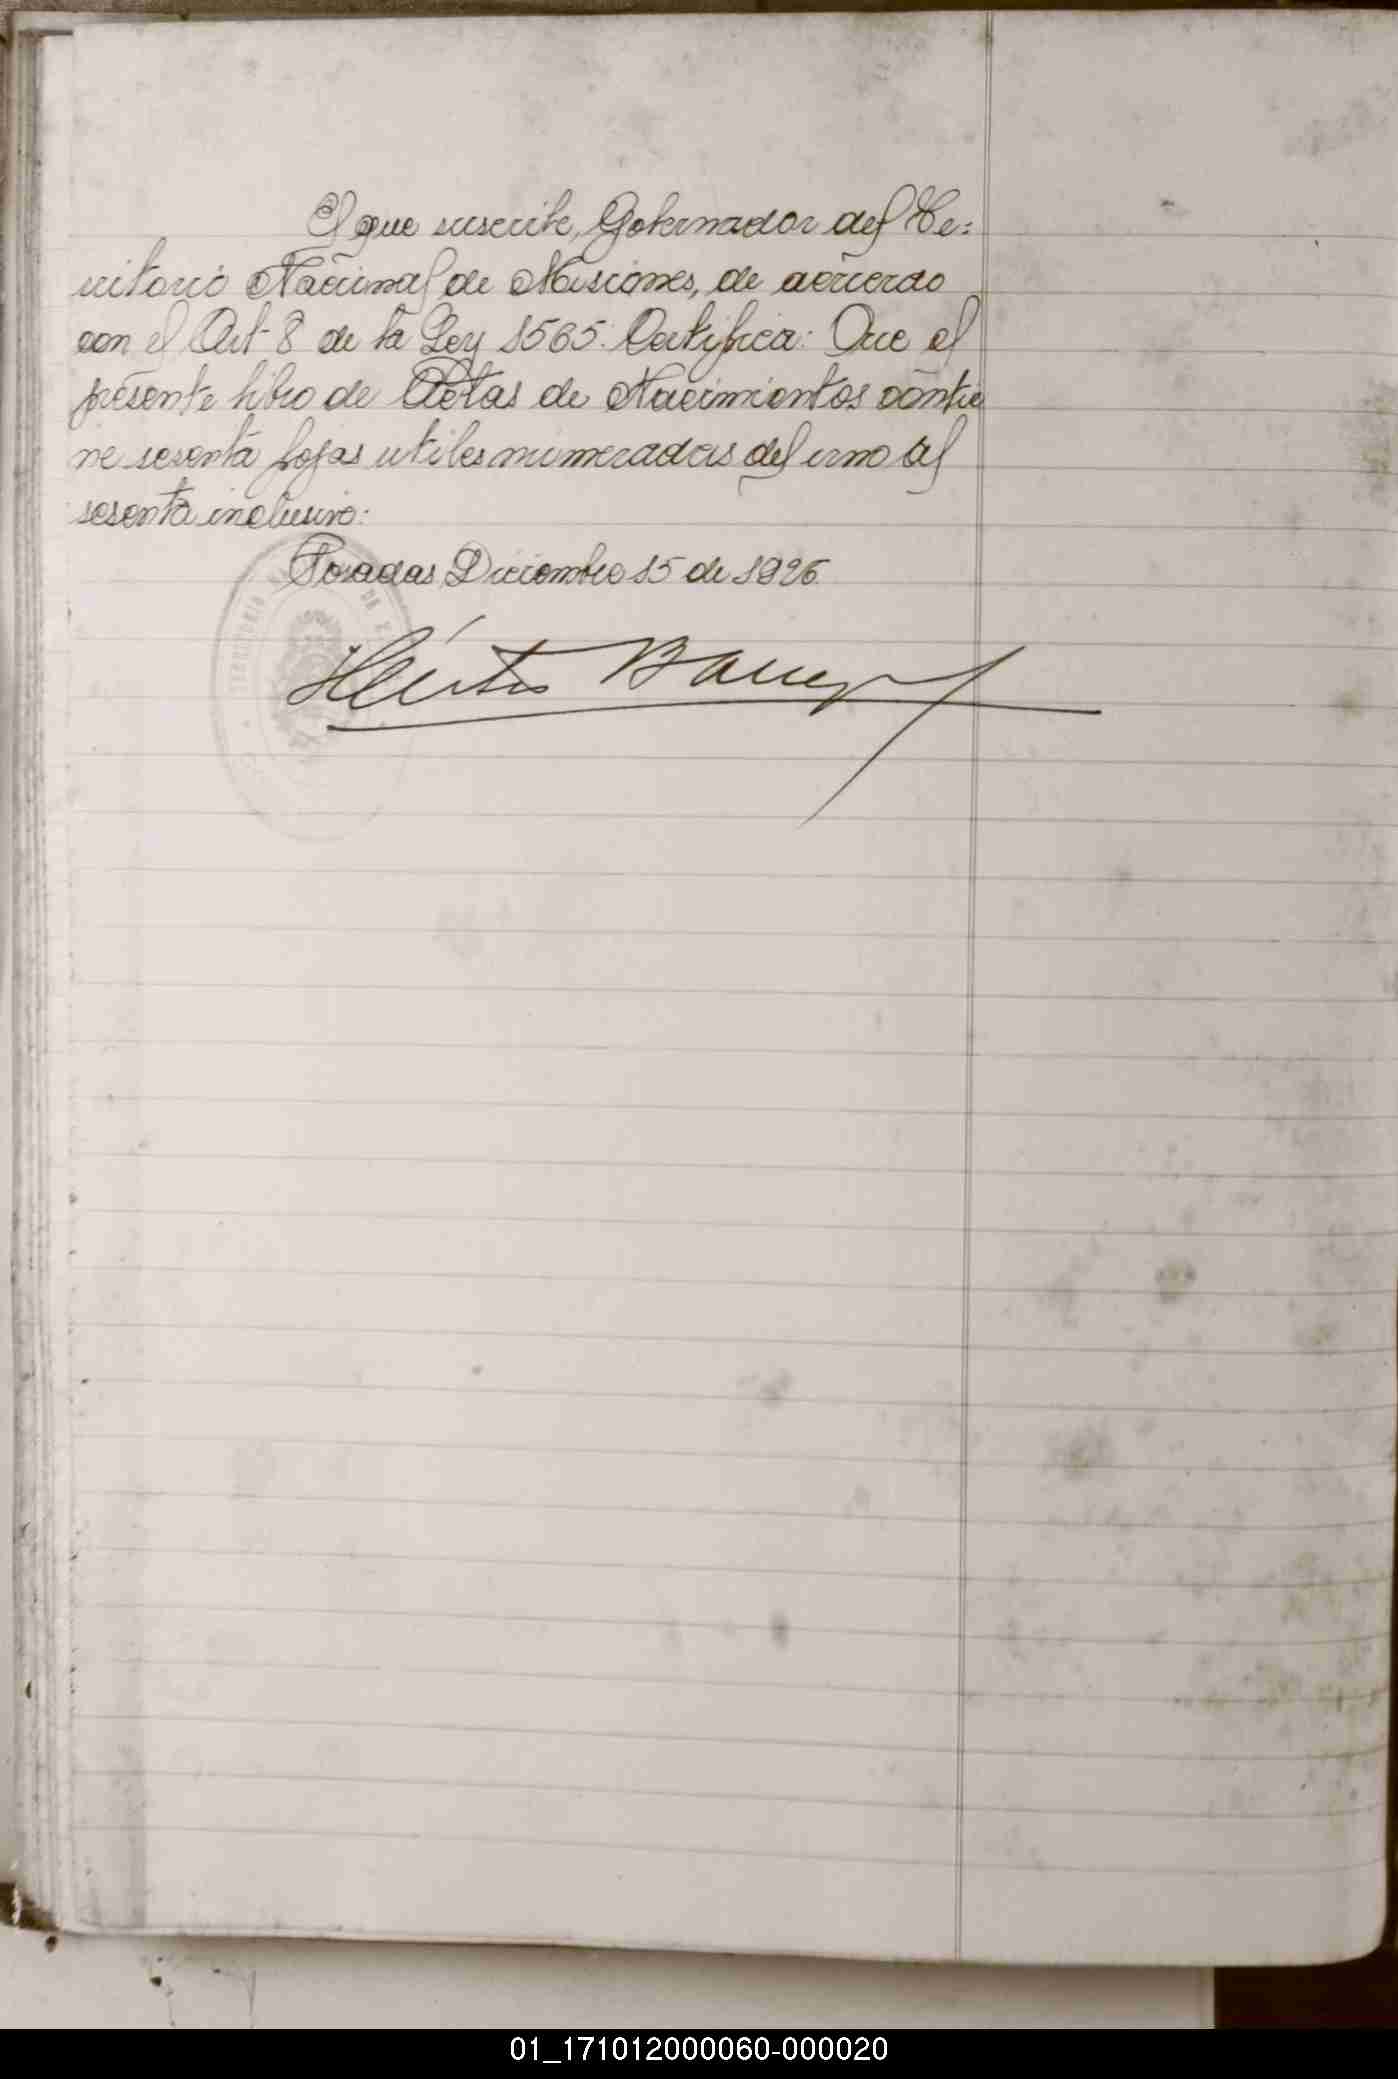 El que suscribe, Gobernador del Te=
rritorio Nacional de Misiones, de acuerdo
con el Art 8 de la Ley 1565: Certifica: Que el
presente libro de Actas de Nacimientos contie
ne sesenta fojas utiles numeradas del uno al
sesenta inclusive:
Posadas Diciembre 15 de 1926
Héctor Barreyro
TERRITORIO
01_171012000060-000020